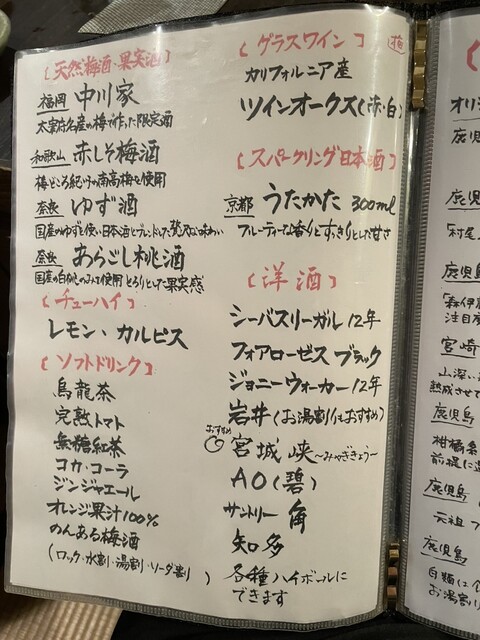 【天然梅酒・果実酒】
福岡 中川家
太宰府名産の梅で作った限定酒
和歌山 赤しそ梅酒
梅どころ紀州の南高梅を使用
奈良 ゆず酒
国産のゆずを使い日本酒とブレンドした贅沢な味わい
奈良 あらごし桃酒
国産の白桃のみを使用 とろりとした果実感
【チューハイ】
レモン・カルピス
【ソフトドリンク】
烏龍茶
完熟トマト
無糖紅茶
コカ・コーラ
ジンジャエール
オレンジ果汁100%
のんある梅酒
(ロック・水割・湯割・ソーダ割)
【グラスワイン】
カリフォルニア産
ツインオークス(赤・白)
【スパークリング日本酒】
京都 うたかた 300ml
フルーティーな香りとすっきりとした甘さ
【洋酒】
シーバスリーガル12年
フォアローゼス ブラック
ジョニーウォーカー12年
岩井(お湯割りもおすすめ)
おすすめ
宮城峡~みやぎきょう~
AO(碧)
サントリー 角
知多
各種ハイボールに
できます
オリジ
鹿児
鹿児
「村尾
鹿児島
「森伊蔵
注目度
宮崎
山深い
熟成させて
鹿児島
柑橘系
前提に造
鹿児島
元祖
鹿児島
お湯割